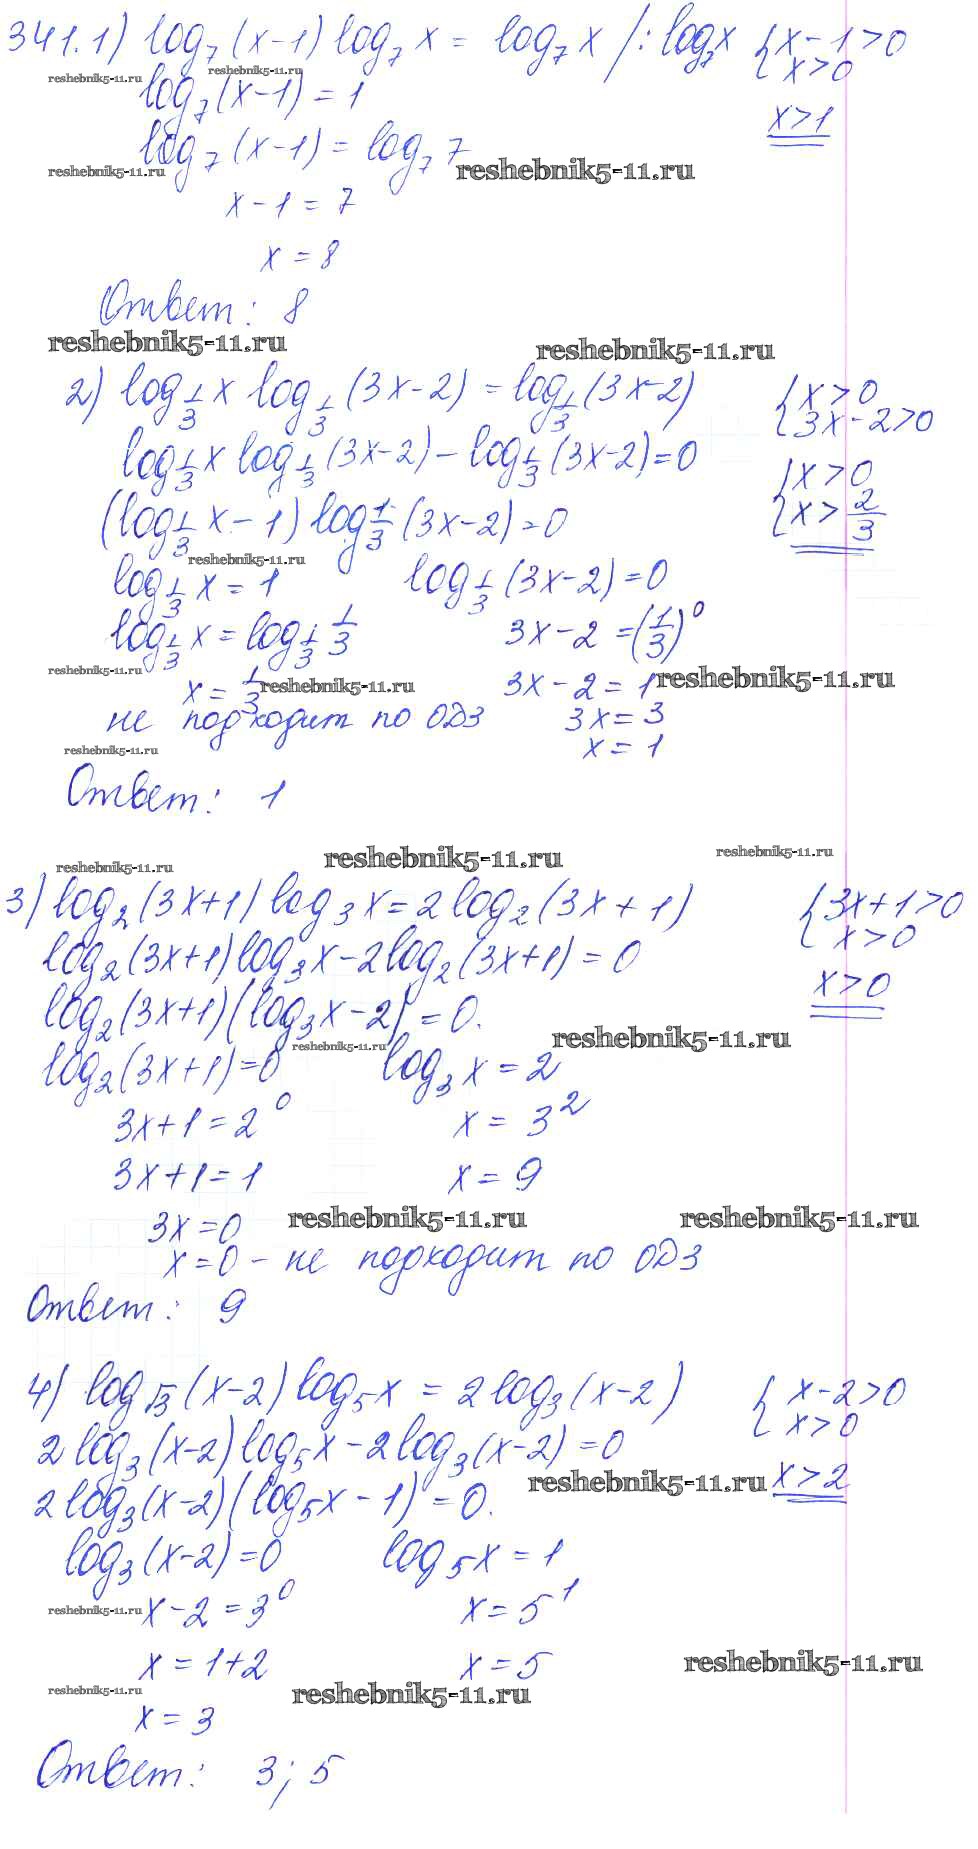 341.1) log₇(x-1) log₇x = log₇x /: log₇x { x-1>0
x>0
reshebnik5-11.ru reshebnik5-11.ru
log₇(x-1) = 1
x>1
log₇(x-1) = log₇7
reshebnik5-11.ru reshebnik5-11.ru
x-1 = 7
x = 8
Ответ: 8
reshebnik5-11.ru reshebnik5-11.ru
2) log_{1/3} x log_{1/3} (3x-2) = log_{1/3} (3x-2) { x>0
3x-2>0
log_{1/3} x log_{1/3} (3x-2) - log_{1/3} (3x-2) = 0
{ x>0
x> 2/3
(log_{1/3} x - 1) log_{1/3} (3x-2) = 0
reshebnik5-11.ru
log_{1/3} x = 1 log_{1/3} (3x-2) = 0
log_{1/3} x = log_{1/3} 1/3 3x-2 = (1/3)⁰
reshebnik5-11.ru
x = 1/3 reshebnik5-11.ru 3x-2 = 1 reshebnik5-11.ru
не подходит по ОДЗ 3x = 3
reshebnik5-11.ru x = 1
Ответ: 1
reshebnik5-11.ru reshebnik5-11.ru reshebnik5-11.ru
3) log₂(3x+1) log₃x = 2log₂(3x+1) { 3x+1>0
x>0
log₂(3x+1) log₃x - 2log₂(3x+1) = 0
x>0
log₂(3x+1)(log₃x-2) = 0.
reshebnik5-11.ru reshebnik5-11.ru
log₂(3x+1) = 0 log₃x = 2
3x+1 = 2⁰ x = 3²
3x+1 = 1 x = 9
3x = 0 reshebnik5-11.ru reshebnik5-11.ru
x = 0 - не подходит по ОДЗ
Ответ: 9
4) log_{√3}(x-2) log₅x = 2log₃(x-2) { x-2>0
x>0
2log₃(x-2) log₅x - 2log₃(x-2) = 0
reshebnik5-11.ru x>2
2log₃(x-2)(log₅x - 1) = 0.
log₃(x-2) = 0 log₅x = 1
reshebnik5-11.ru x-2 = 3⁰ x = 5¹
x = 1+2 x = 5 reshebnik5-11.ru
reshebnik5-11.ru reshebnik5-11.ru
x = 3
Ответ: 3; 5